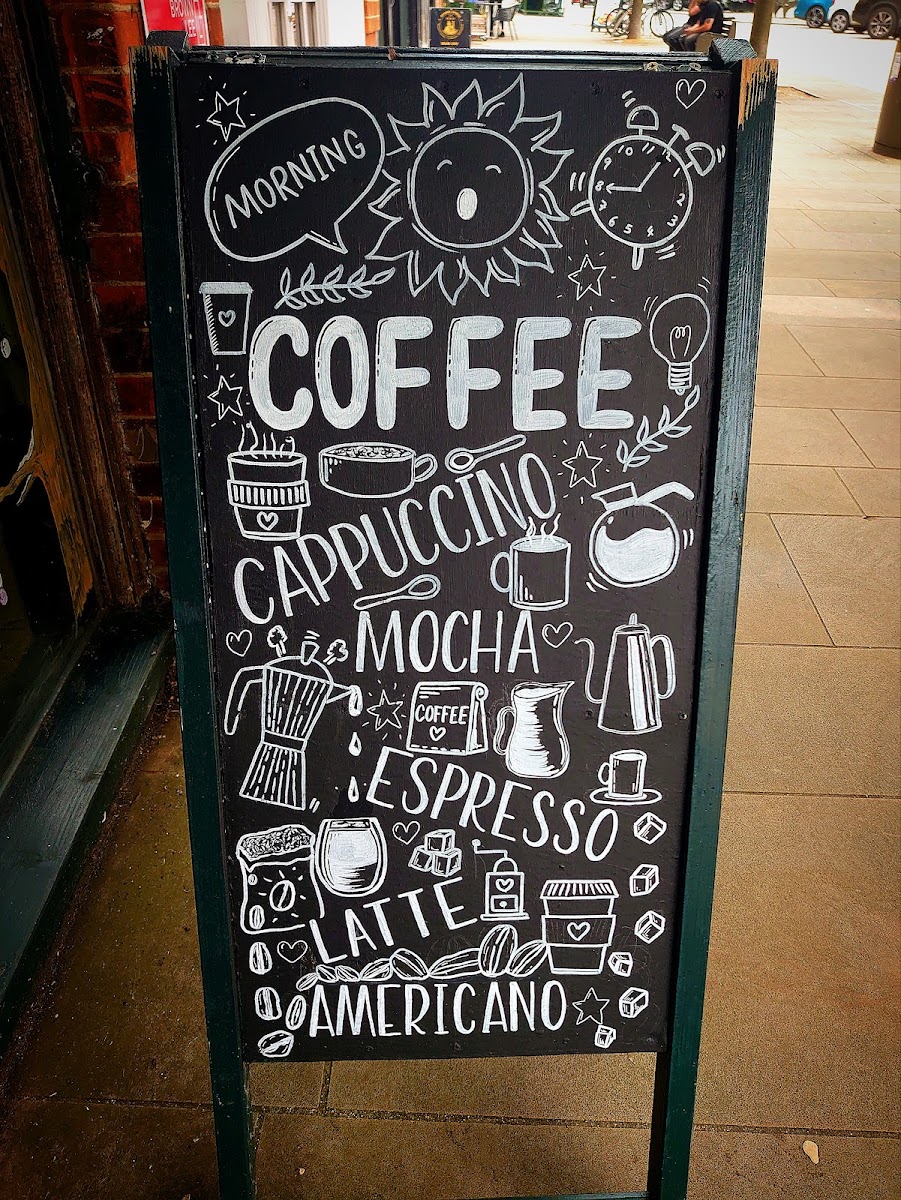 MORNING
COFFEE
CAPPUCCINO
MOCHA
COFFEE
ESPRESSO
LATTE
AMERICANO